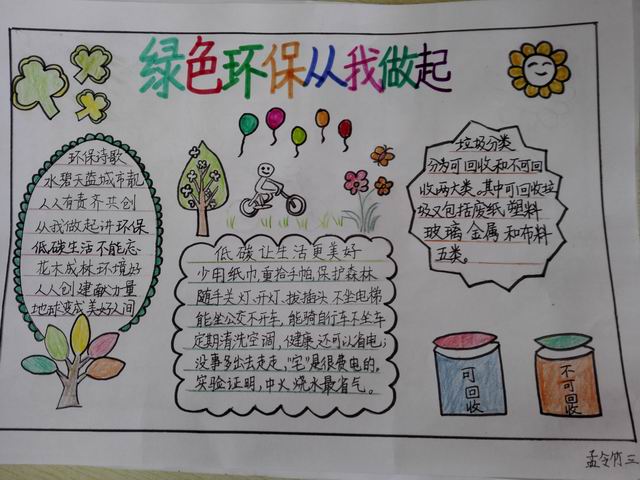 绿色环保从我做起
环保诗歌
水碧天蓝城市靓
人人有责齐共创
从我做起讲环保
低碳生活不能忘
花木成林环境好
人人创建献力量
地球变成美好人间
低碳让生活更美好
少用纸巾,重拾手帕,保护森林
随手关灯、开灯、拔插头 不坐电梯
能坐公交不开车, 能骑自行车不坐车
定期清洗空调, 健康还可以省电;
没事多出去走走, "宅"是很费电的。
实验证明, 中火烧水最省气。
垃圾分类
分为可回收和不可回
收两大类。其中可回收垃
圾又包括废纸,塑料
玻璃 金属 和布料
五类。
可回收
不可回收